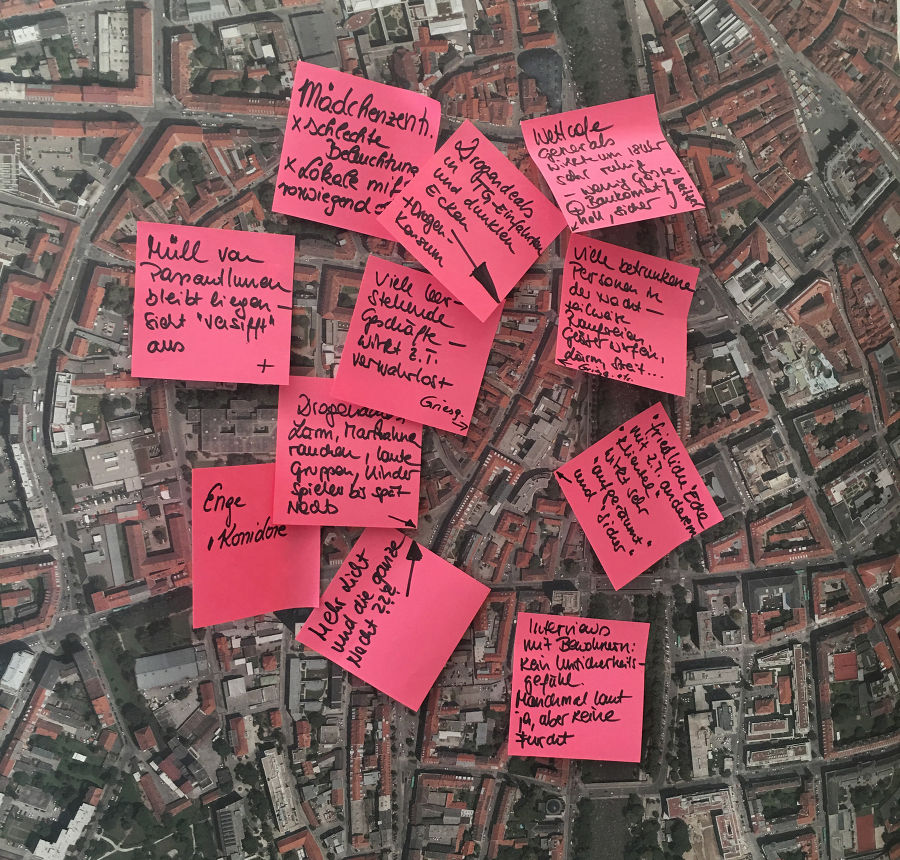 Mädchenzent.
x schlechte
Beleuchtung
x Lokale mit
vorwiegend ♂
Drogendeals
in TG-Einfahrten
und dunklen
Ecken
+ Drogen-
Konsum
Wettcafe
generals
wirkt um 18 Uhr
sehr ruhig
- wenig Gäste.
@ Bankomat }
hell, sicher
Müll von
PassantInnen
bleibt liegen -
sieht "versifft"
aus
+
Viele leer-
stehende
Geschäfte -
wirkt z.T.
verwahrlost
Griesg.
Viele betrunkene
Personen in
der Nacht -
teilweise
Raufereien
Gläser werfen,
Lärm, Streit...
← Griesg. etc.
Lärm, Marihuana
rauchen, laute
Gruppen, Kinder
spielen bis spät
Nachts
Enge
"Korridore
"friedliche" Ecke
mit z.T. anderem
"Klientel"
wirkt sehr
"aufgeräumt"
und "sicher"
Mehr Licht
und die ganze
Nacht ???
Interviews
mit Bewohnern:
Kein Unsicherheits-
gefühl.
Manchmal laut
ja, aber keine
Furcht